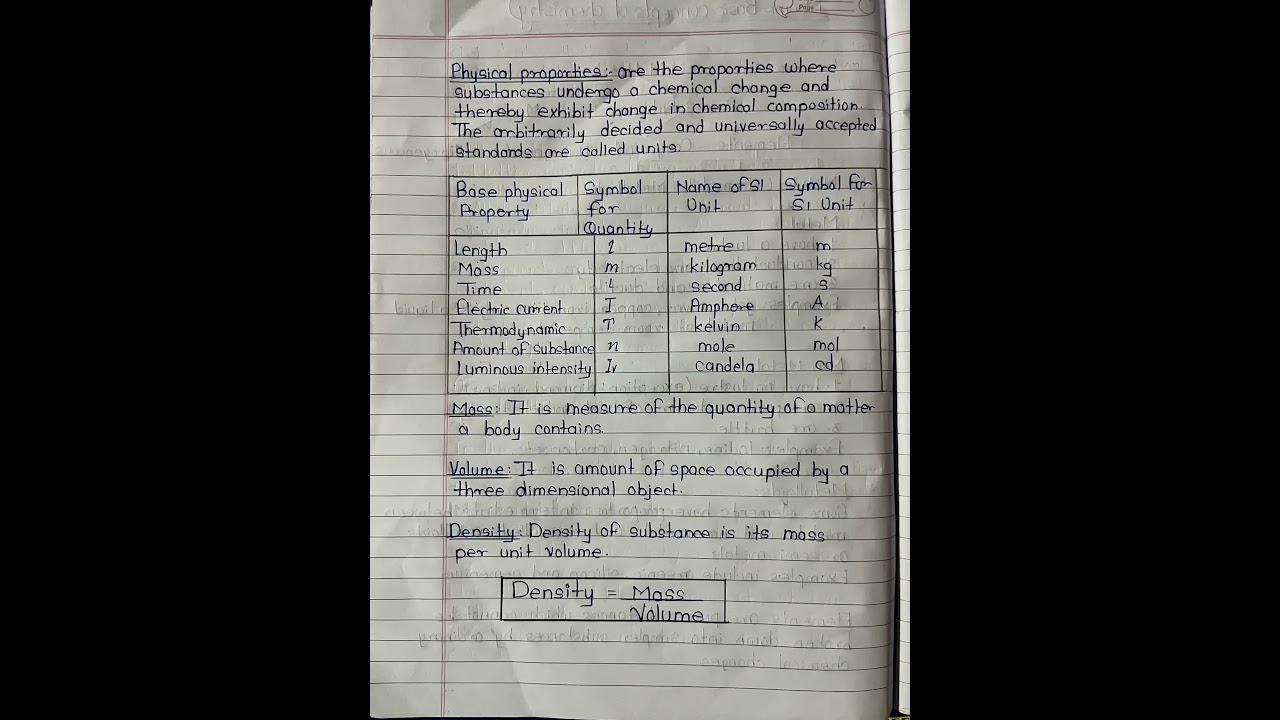 Physical properties:- are the properties where
substances undergo a chemical change and
thereby exhibit change in chemical composition.
The arbitrarily decided and universally accepted
standards are called units.
Base physical Property | Symbol for Quantity | Name of SI Unit | Symbol for SI Unit
Length l metre m
Mass m kilogram kg
Time t second s
Electric current I Amphere A
Thermodynamic T kelvin K
Amount of substance n mole mol
Luminous intensity Iv candela cd
Mass: It is measure of the quantity of a matter
a body contains.
Volume: It is amount of space occupied by a
three dimensional object.
Density: Density of substance is its mass
per unit volume.
Density = Mass
Volume